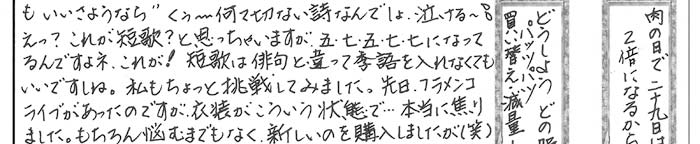 も いいさようなら" くぅ〜何て切ない詩なんでしょ、泣ける〜。
えっ？これが短歌？と思っちゃいますが、五・七・五・七・七になって
るんですよネ、これが！ 短歌は俳句と違って季語を入れなくても
いいですしね。私もちょっと挑戦してみました。先日、フラメンコ
ライブがあったのですが、衣装がこういう状態で…本当に焦り
ました。もちろん悩むまでもなく、新しいのを購入しましたが(笑)
肉の日で 二十九日は
2倍になるから
どうしよう どの服
パッツパツ
買い替え・減量